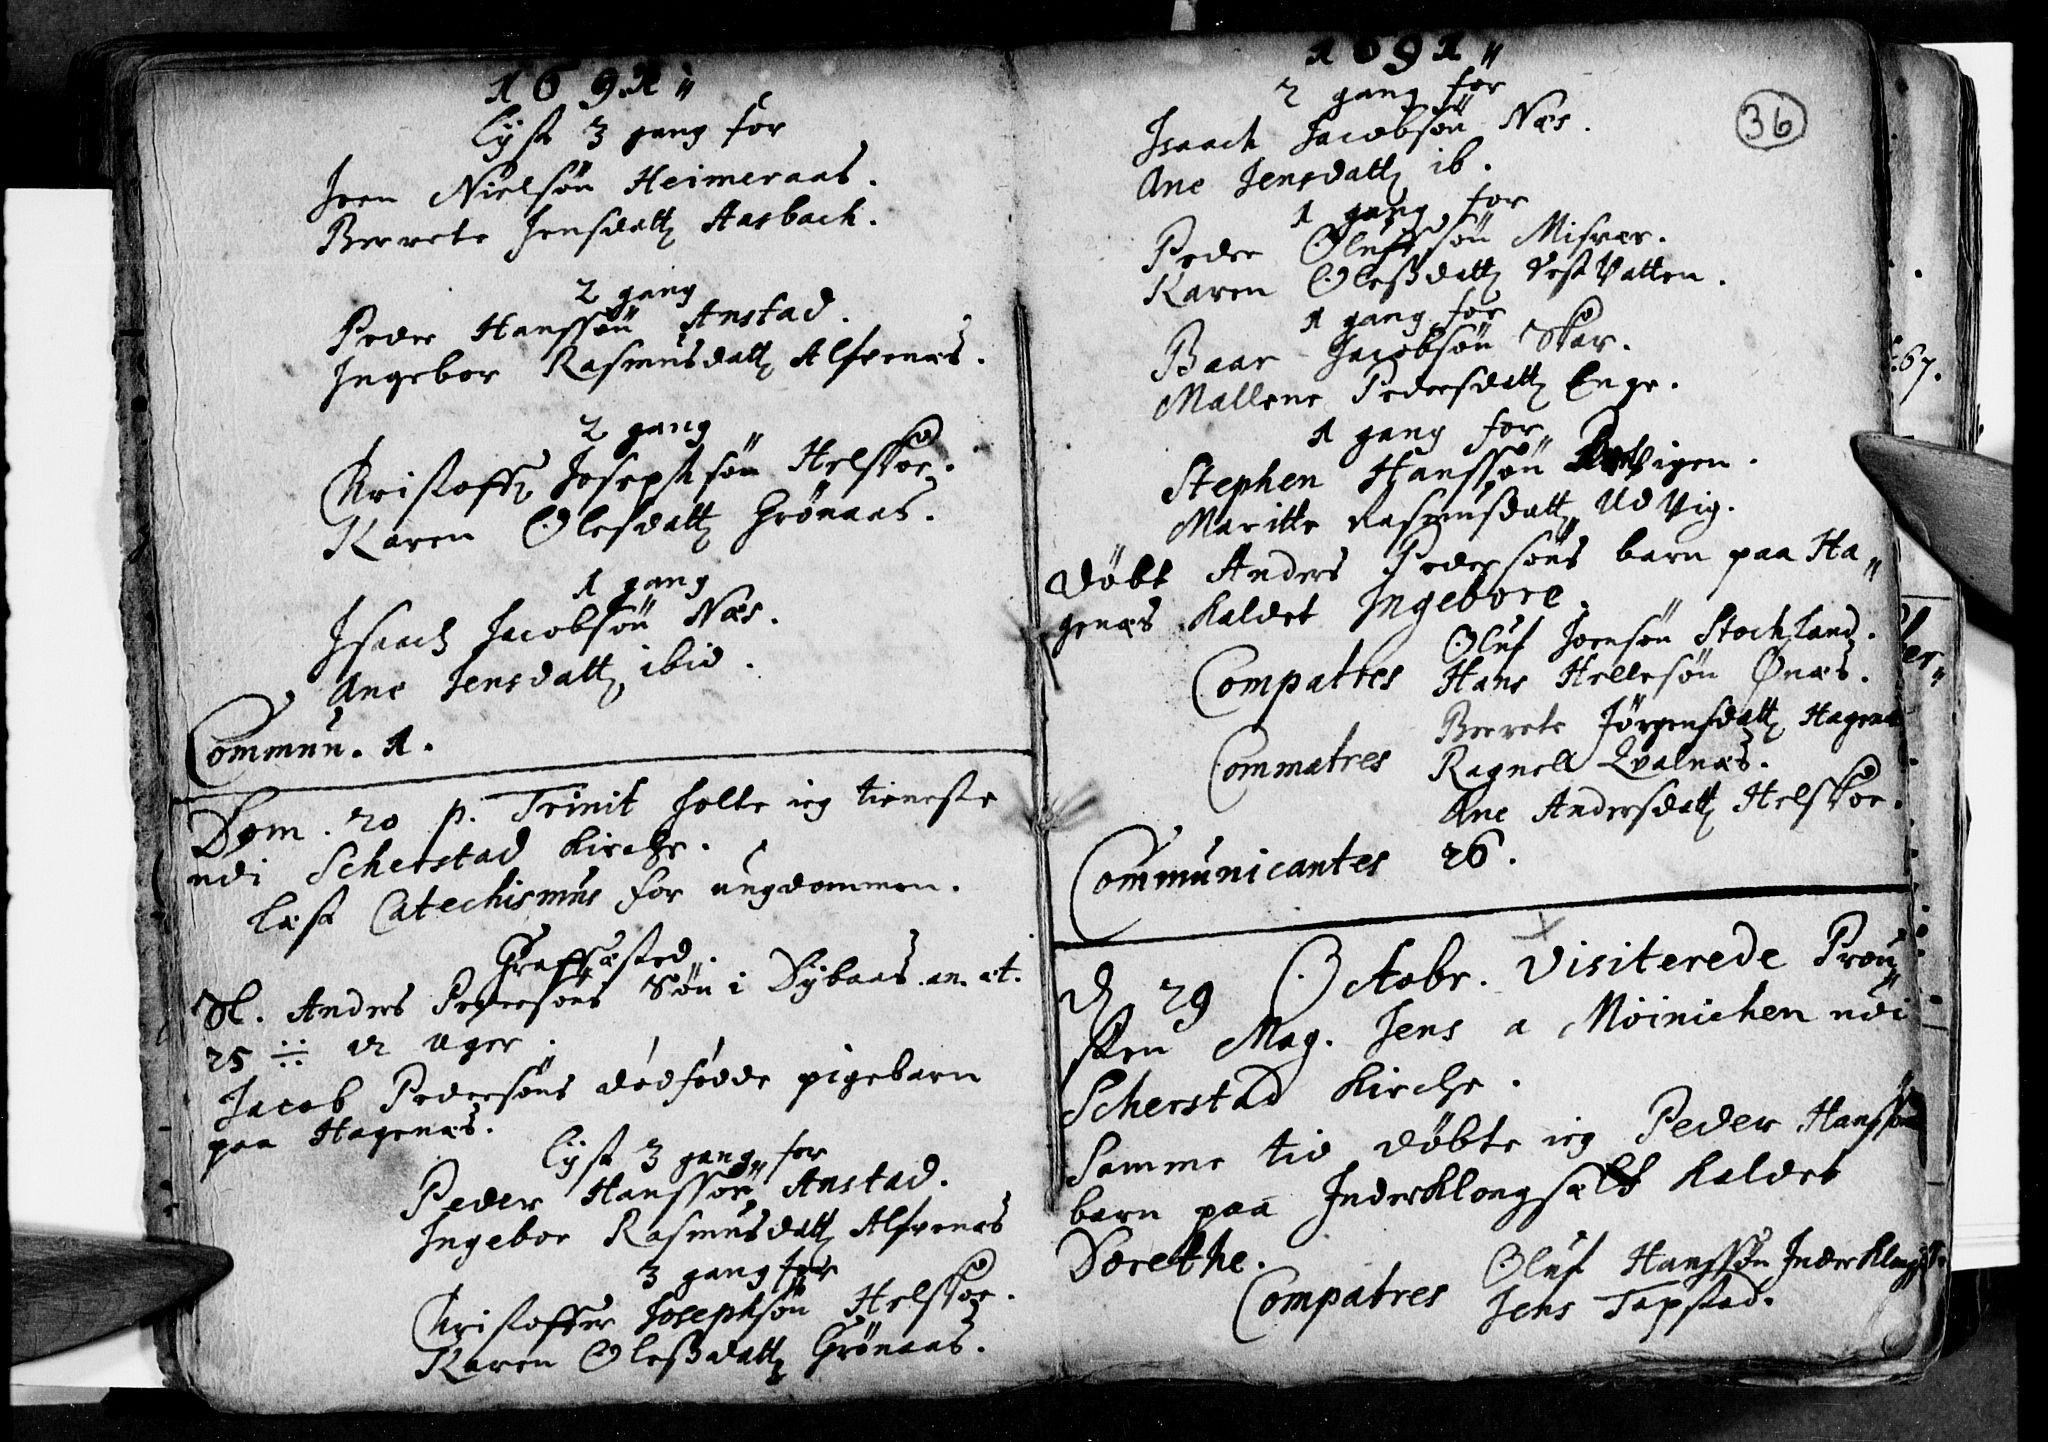 1691
Lyst 3 gang for
Joen Nielsøn Heimeraas.
Berrete Jensdatt Aasbach.
2 gang
Peder Hanssøn Anstad.
Ingebor Rasmusdatt Alfvenæs.
2 gang
Christoff Josephsøn Helskoe.
Karen Olesdatt Grønaas.
1 gang
Isaach Jacobsøn Næs.
Ane Jensdatt ibid.
Commun. 1.
Dom. 20 p. Trinit holte ieg tieneste
udi Scherstad Kirche.
Læst Catechismus for ungdommen.
Graffæsted.
Sl. Anders Pedersøns Søn i Dybaas. an. æt.
25 ÷ 12 uger.
Jacob Pedersøns dødfødde pigebarn
paa Hagenæs.
Lyst 3 gang for
Peder Hanssøn Anstad.
Ingebor Rasmusdatt Alfvenæs
3 gang for
Christoffer Josephsøn Helskoe.
Karen Olesdatt Grønaas.
1691
36
2 gang for
Isaach Jacobsøn Næs.
Ane Jensdatt ib.
1 gang for
Peder Oluffsøn Misvær.
Karen Olesdatt VestVatten.
1 gang for
Baar Jacobsøn Skar.
Mallene Pedersdatt Enge.
1 gang for
Stephen Hanssøn
Maritte Rasmusdatt UdVig.
Døbt Anders Pedersøns barn paa Ha
genæs kaldet Ingebore.
Compatres Oluf Joensøn Stochland.
Hans Hellesøn Ønæs.
Berrete Jørgensdatt Hagenæ
Commatres Ragnell Qvalnæs.
Ane Andersdatt Helskoe.
Communicantes 26.
D 29 Octobr. visiterede Prou
sten Mag. Jens a Møinichen udi
Scherstad Kirche.
Samme tid døbte ieg Peder Hanssøns
barn paa Inderklongsælt kaldet
Dorethe.
Compatres Oluf Hanssøn Inderklong
Jens Tapstad.
67.